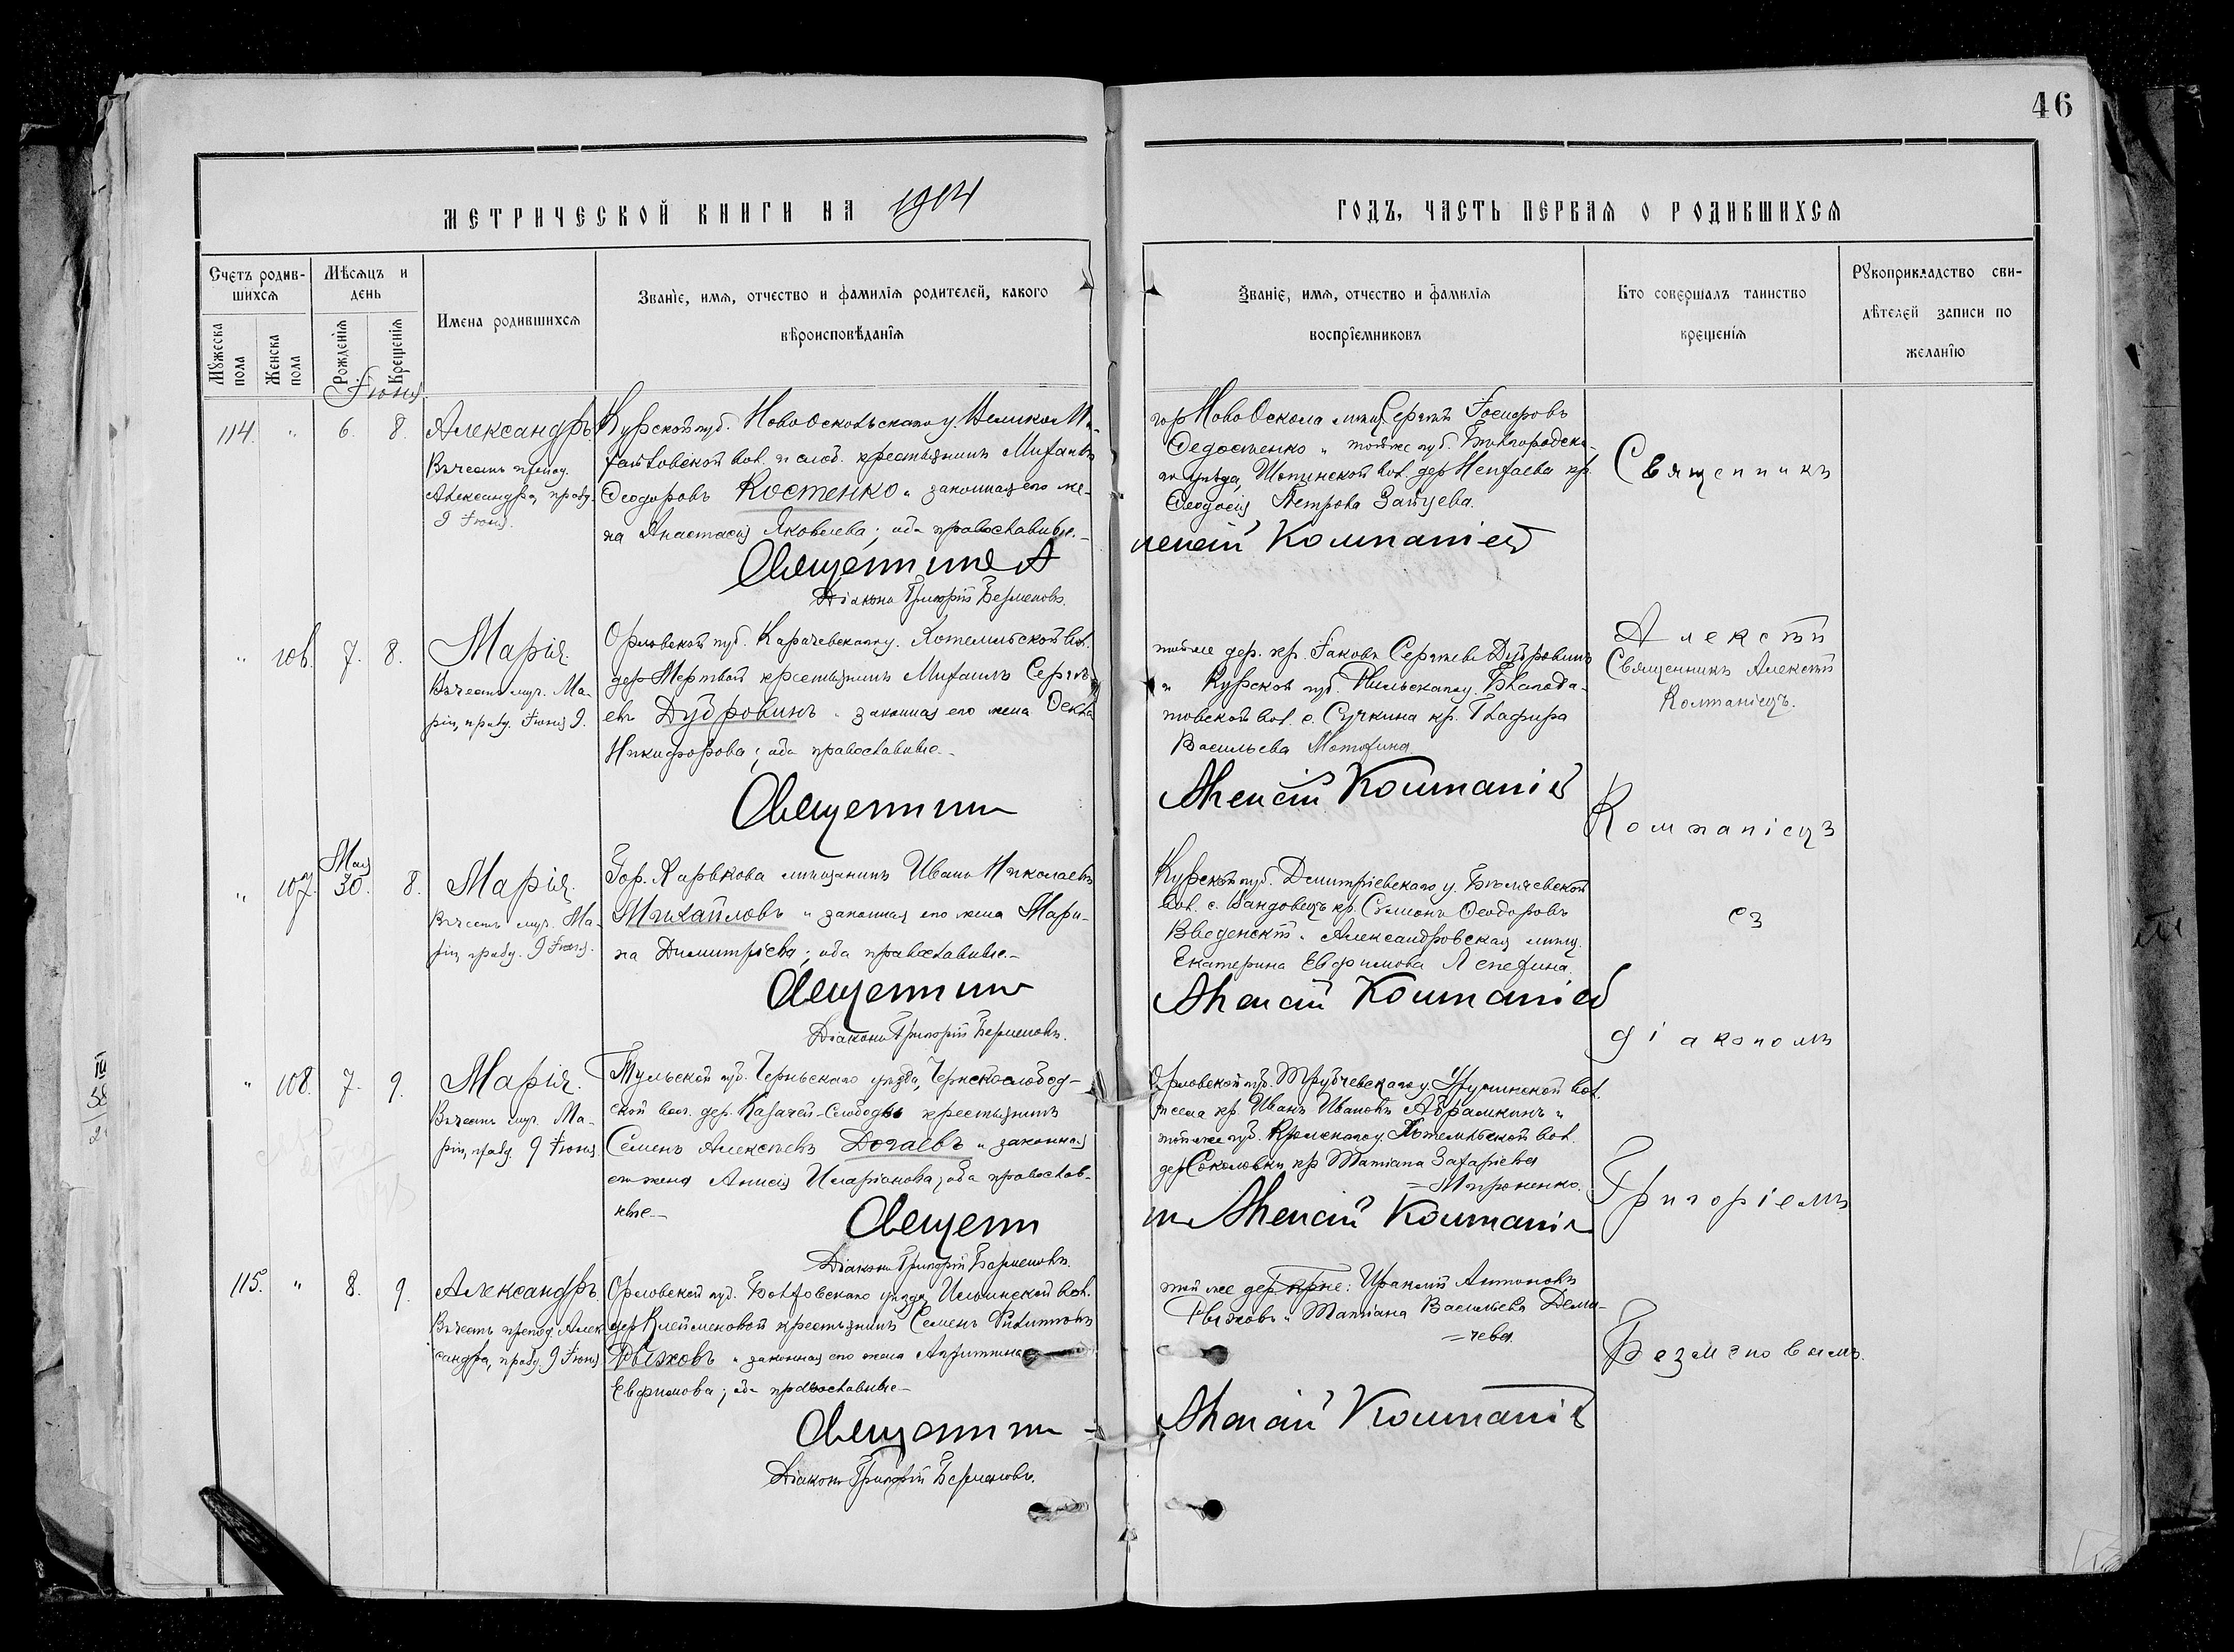 46
МЕТРИЧЕСКОЙ КНИГИ НА 1914
ГОДЪ, ЧАСТЬ ПЕРВАЯ О РОДИВШИХСЯ
Счетъ родив-
шихся
Мѣсяцъ и
день
Мужеска
пола
Женска
пола
Рожденія
Крещенія
Имена родившихся
Званіе, имя, отчество и фамилія родителей, какого
вѣроисповѣданія
Званіе, имя, отчество и фамилія
воспріемниковъ
Кто совершалъ таинство
крещенія
Рукоприкладство сви-
дѣтелей записи по
желанію
Іюня
114. " 6. 8.
Александръ
Въ честь препод.
Александра, празд.
9 Іюня.
Курской губ. НовоОскольскаго у. Велико Ми-
хайловской вол. и слоб. крестьянинъ Михаилъ
Ѳеодоровъ Костенко и законная его же-
на Анастасія Яковлева; оба православные.
Священникъ А
Діаконъ Григорій Безменовъ.
гор. НовоОскола мѣщ. Сергѣй Іосифовъ
Ѳедостенко и той же губ. Бѣлгородска-
го уѣзда, Шопинской вол. дер. Нечаева кр.
Ѳеодосія Петрова Зайцева.
лексій Компаніецъ
" 106. 7. 8.
Марія.
Въ честь муч. Ма-
ріи, празд. Іюня 9.
Орловской губ. Карачевскаго у. Хотемльской вол.
дер. Мертвой крестьянинъ Михаилъ Сергѣ-
евъ Дубровинъ и законная его жена Ѳекла
Никифорова; оба православные.
Священникъ
той же дер. кр. Іаковъ Сергѣевъ Дубровинъ
и Курской губ. Рыльскаго у. Благода-
товской вол. с. Сучкина кр. Глафира
Васильева Мотохина.
Алексій Компаніецъ
Мая
" 107. 30. 8.
Марія.
Въ честь муч. Ма-
ріи, празд. 9 Іюня.
Гор. Харькова мѣщанинъ Иванъ Николаевъ
Михайловъ и законная его жена Мари-
на Димитріева; оба православные.
Священникъ
Діаконъ Григорій Безменовъ.
Курской губ. Дмитріевскаго у.
вол. с. кр. Сѵмеонъ Ѳеодоровъ
Введенскій и Александровская мѣщ.
Екатерина Евфимова Лепехина.
Алексій Компаніецъ
" 108. 7. 9.
Марія.
Въ честь муч. Ма-
ріи, празд. 9 Іюня.
Тульской губ. Чернскаго уѣзда, Чернскослобод-
ской вол. дер. Казачей-Слободы крестьянинъ
Семенъ Алексѣевъ Догаевъ и законная
его жена Анисія Иларіонова; оба православ-
ные.
Священн
Діаконъ Григорій Безменовъ.
Орловской губ. Трубчевскаго у. вол.
и села кр. Иванъ Ивановъ Абрамкинъ и
той же губ. вол.
дер. Соколовки кр. Татіана Захаріева
= Мироненко.
икъ Алексій Компаніецъ
115. " 8. 9.
Александръ.
Въ честь препод. Алек-
сандра, празд. 9 Іюня
Орловской губ. Болховскаго уѣзда, Ильинской вол.
дер. Клейменовой крестьянинъ Семенъ Филипповъ
Рыжовъ и законная его жена Акилина
Евфимова; оба православные
Священникъ
Діаконъ Григорій Безменовъ.
той же дер. кр-не: Ираклій Антоновъ
Рыжовъ и Татіана Васильева Дени-
= чева.
Алексій Компаніецъ
Священникъ
Алексій
Священникъ Алексій
Компаніецъ.
Компаніецъ
съ
діакономъ
Григоріемъ
Безменовымъ.